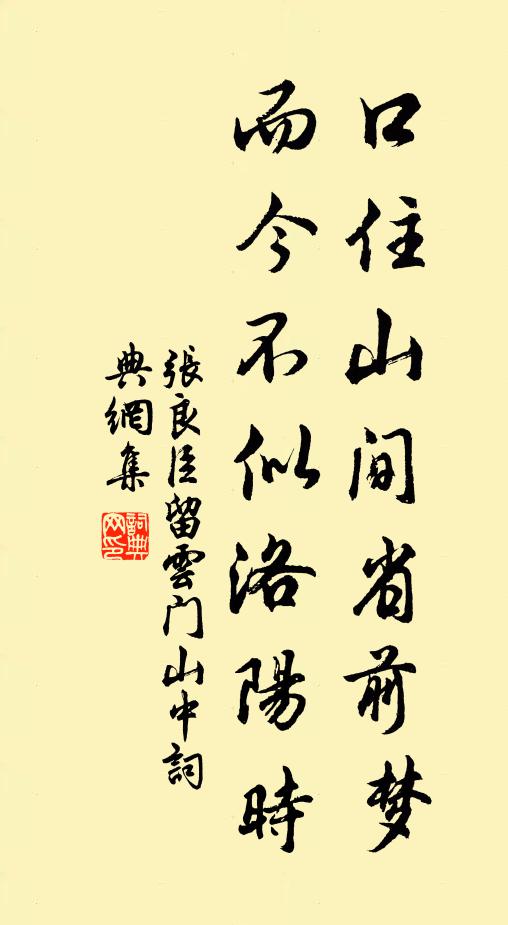 口住山间省前梦
而今不似洛陽時
張良臣留雲门山中詞
典網集
詞典網印